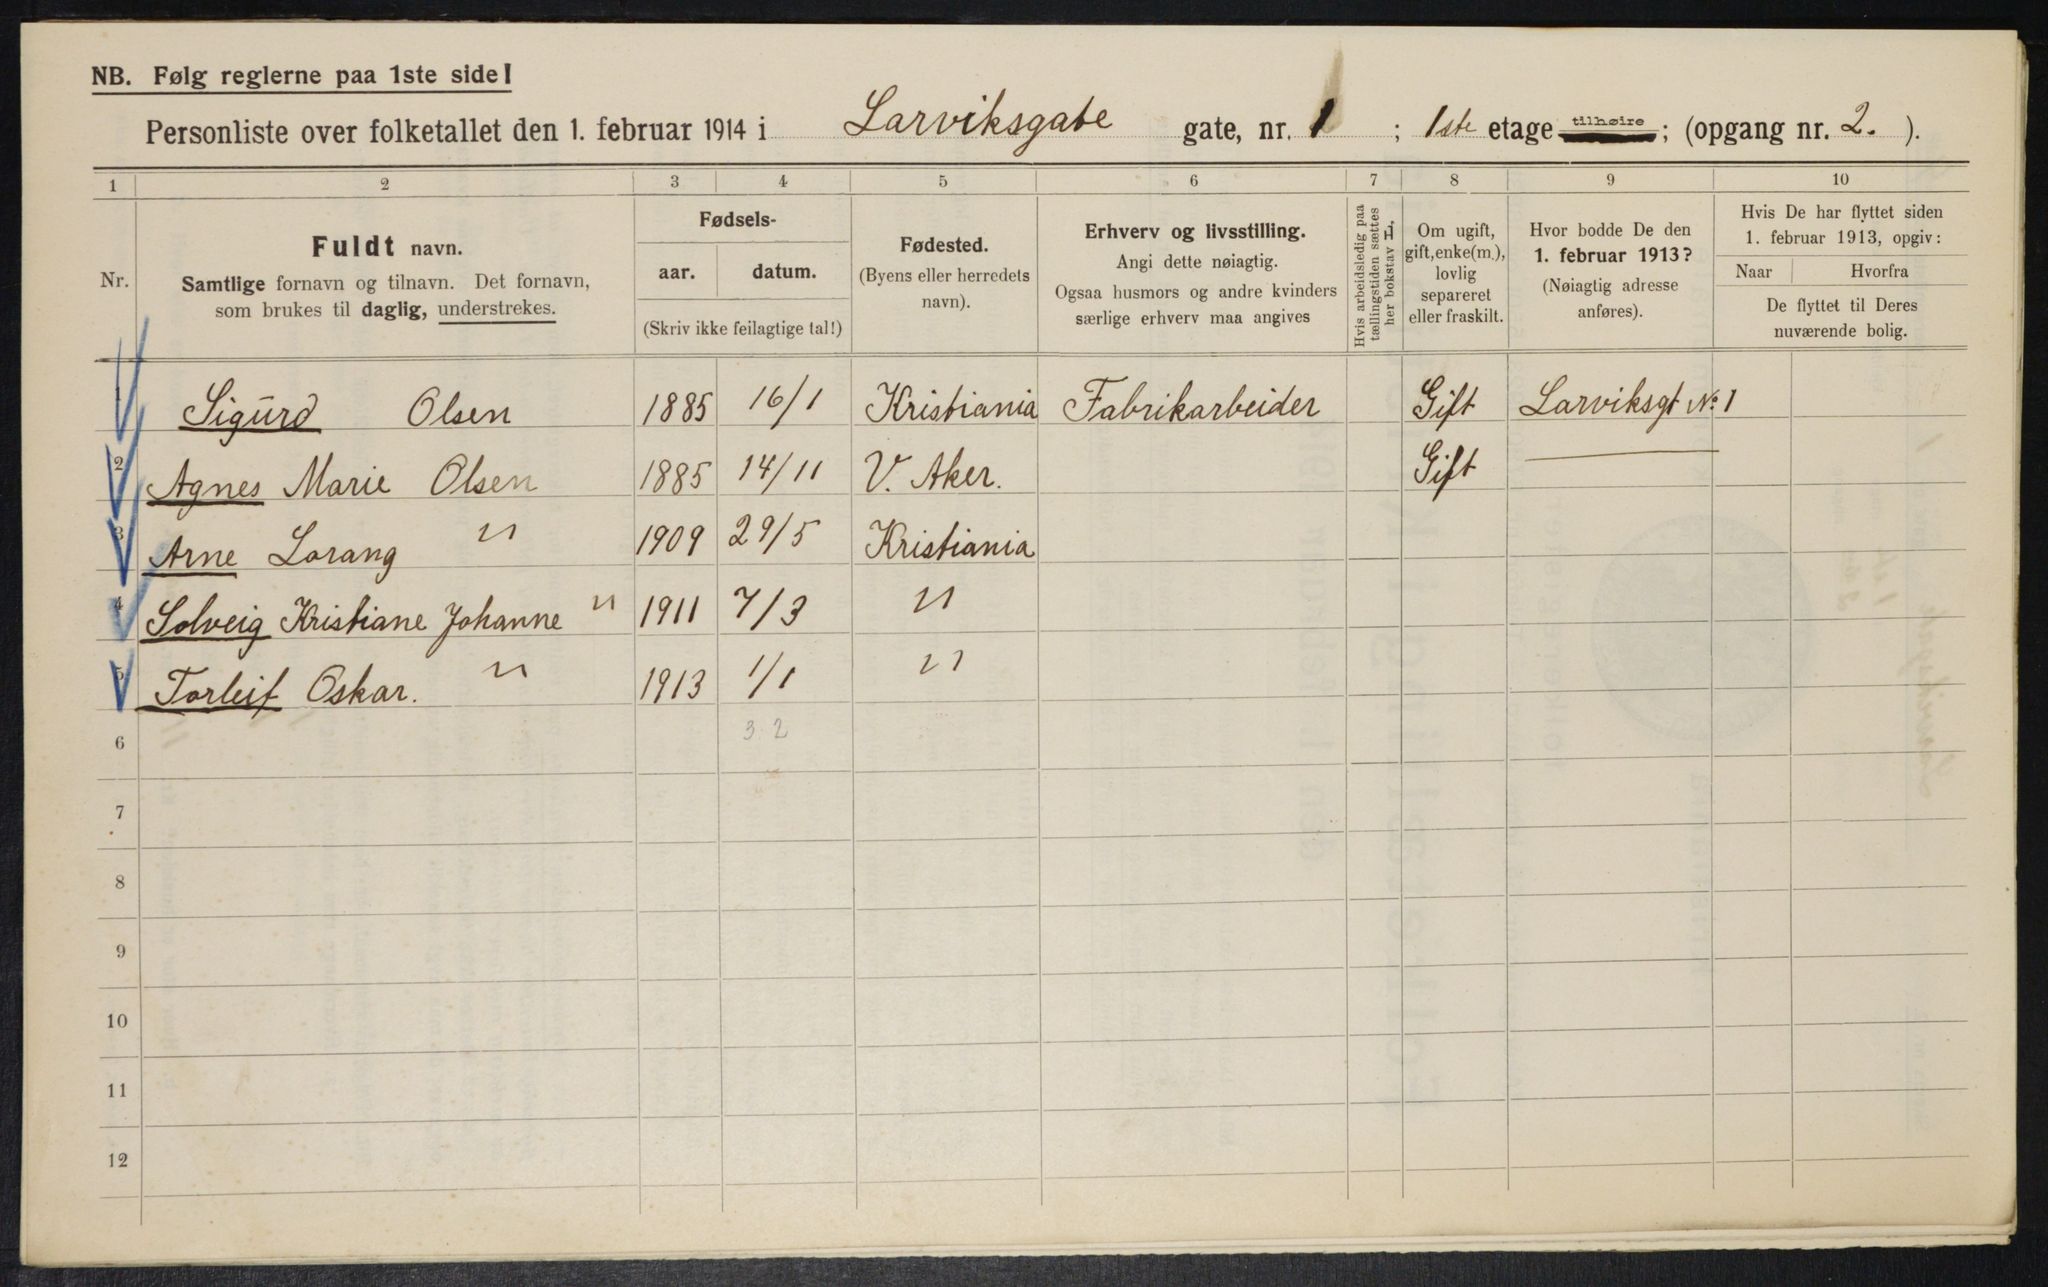 NB. Følg reglerne paa 1ste side!
Personliste over folketallet den 1. februar 1914 i Larviksgate gate, nr. 1 ; 1ste etage tilhøire ; (opgang nr. 2. ).
1 2 3 4 5 6 7 8 9 10
Nr.
Fuldt navn.
Samtlige fornavn og tilnavn. Det fornavn,
som brukes til daglig, understrekes.
Fødsels-
aar. datum.
(Skriv ikke feilagtige tal!)
Fødested.
(Byens eller herredets
navn).
Erhverv og livsstilling.
Angi dette nøiagtig.
Ogsaa husmors og andre kvinders
særlige erhverv maa angives
Hvis arbeidsledig paa
tællingstiden sættes
her bokstav L.
Om ugift,
gift, enke(m.),
lovlig
separeret
eller fraskilt.
Hvor bodde De den
1. februar 1913?
(Nøiagtig adresse
anføres).
Hvis De har flyttet siden
1. februar 1913, opgiv:
Naar Hvorfra
De flyttet til Deres
nuværende bolig.
1 Sigurd Olsen 1885 16/1 Kristiania Fabrikarbeider Gift Larviksgt No. 1
2 Agnes Marie Olsen 1885 14/11 V. Aker. Gift —
3 Arne Lorang " 1909 29/5 Kristiania
4 Solveig Kristiane Johanne " 1911 7/3 "
5 Torleif Oskar. " 1913 1/1 "
6 3 2
7
8
9
10
11
12